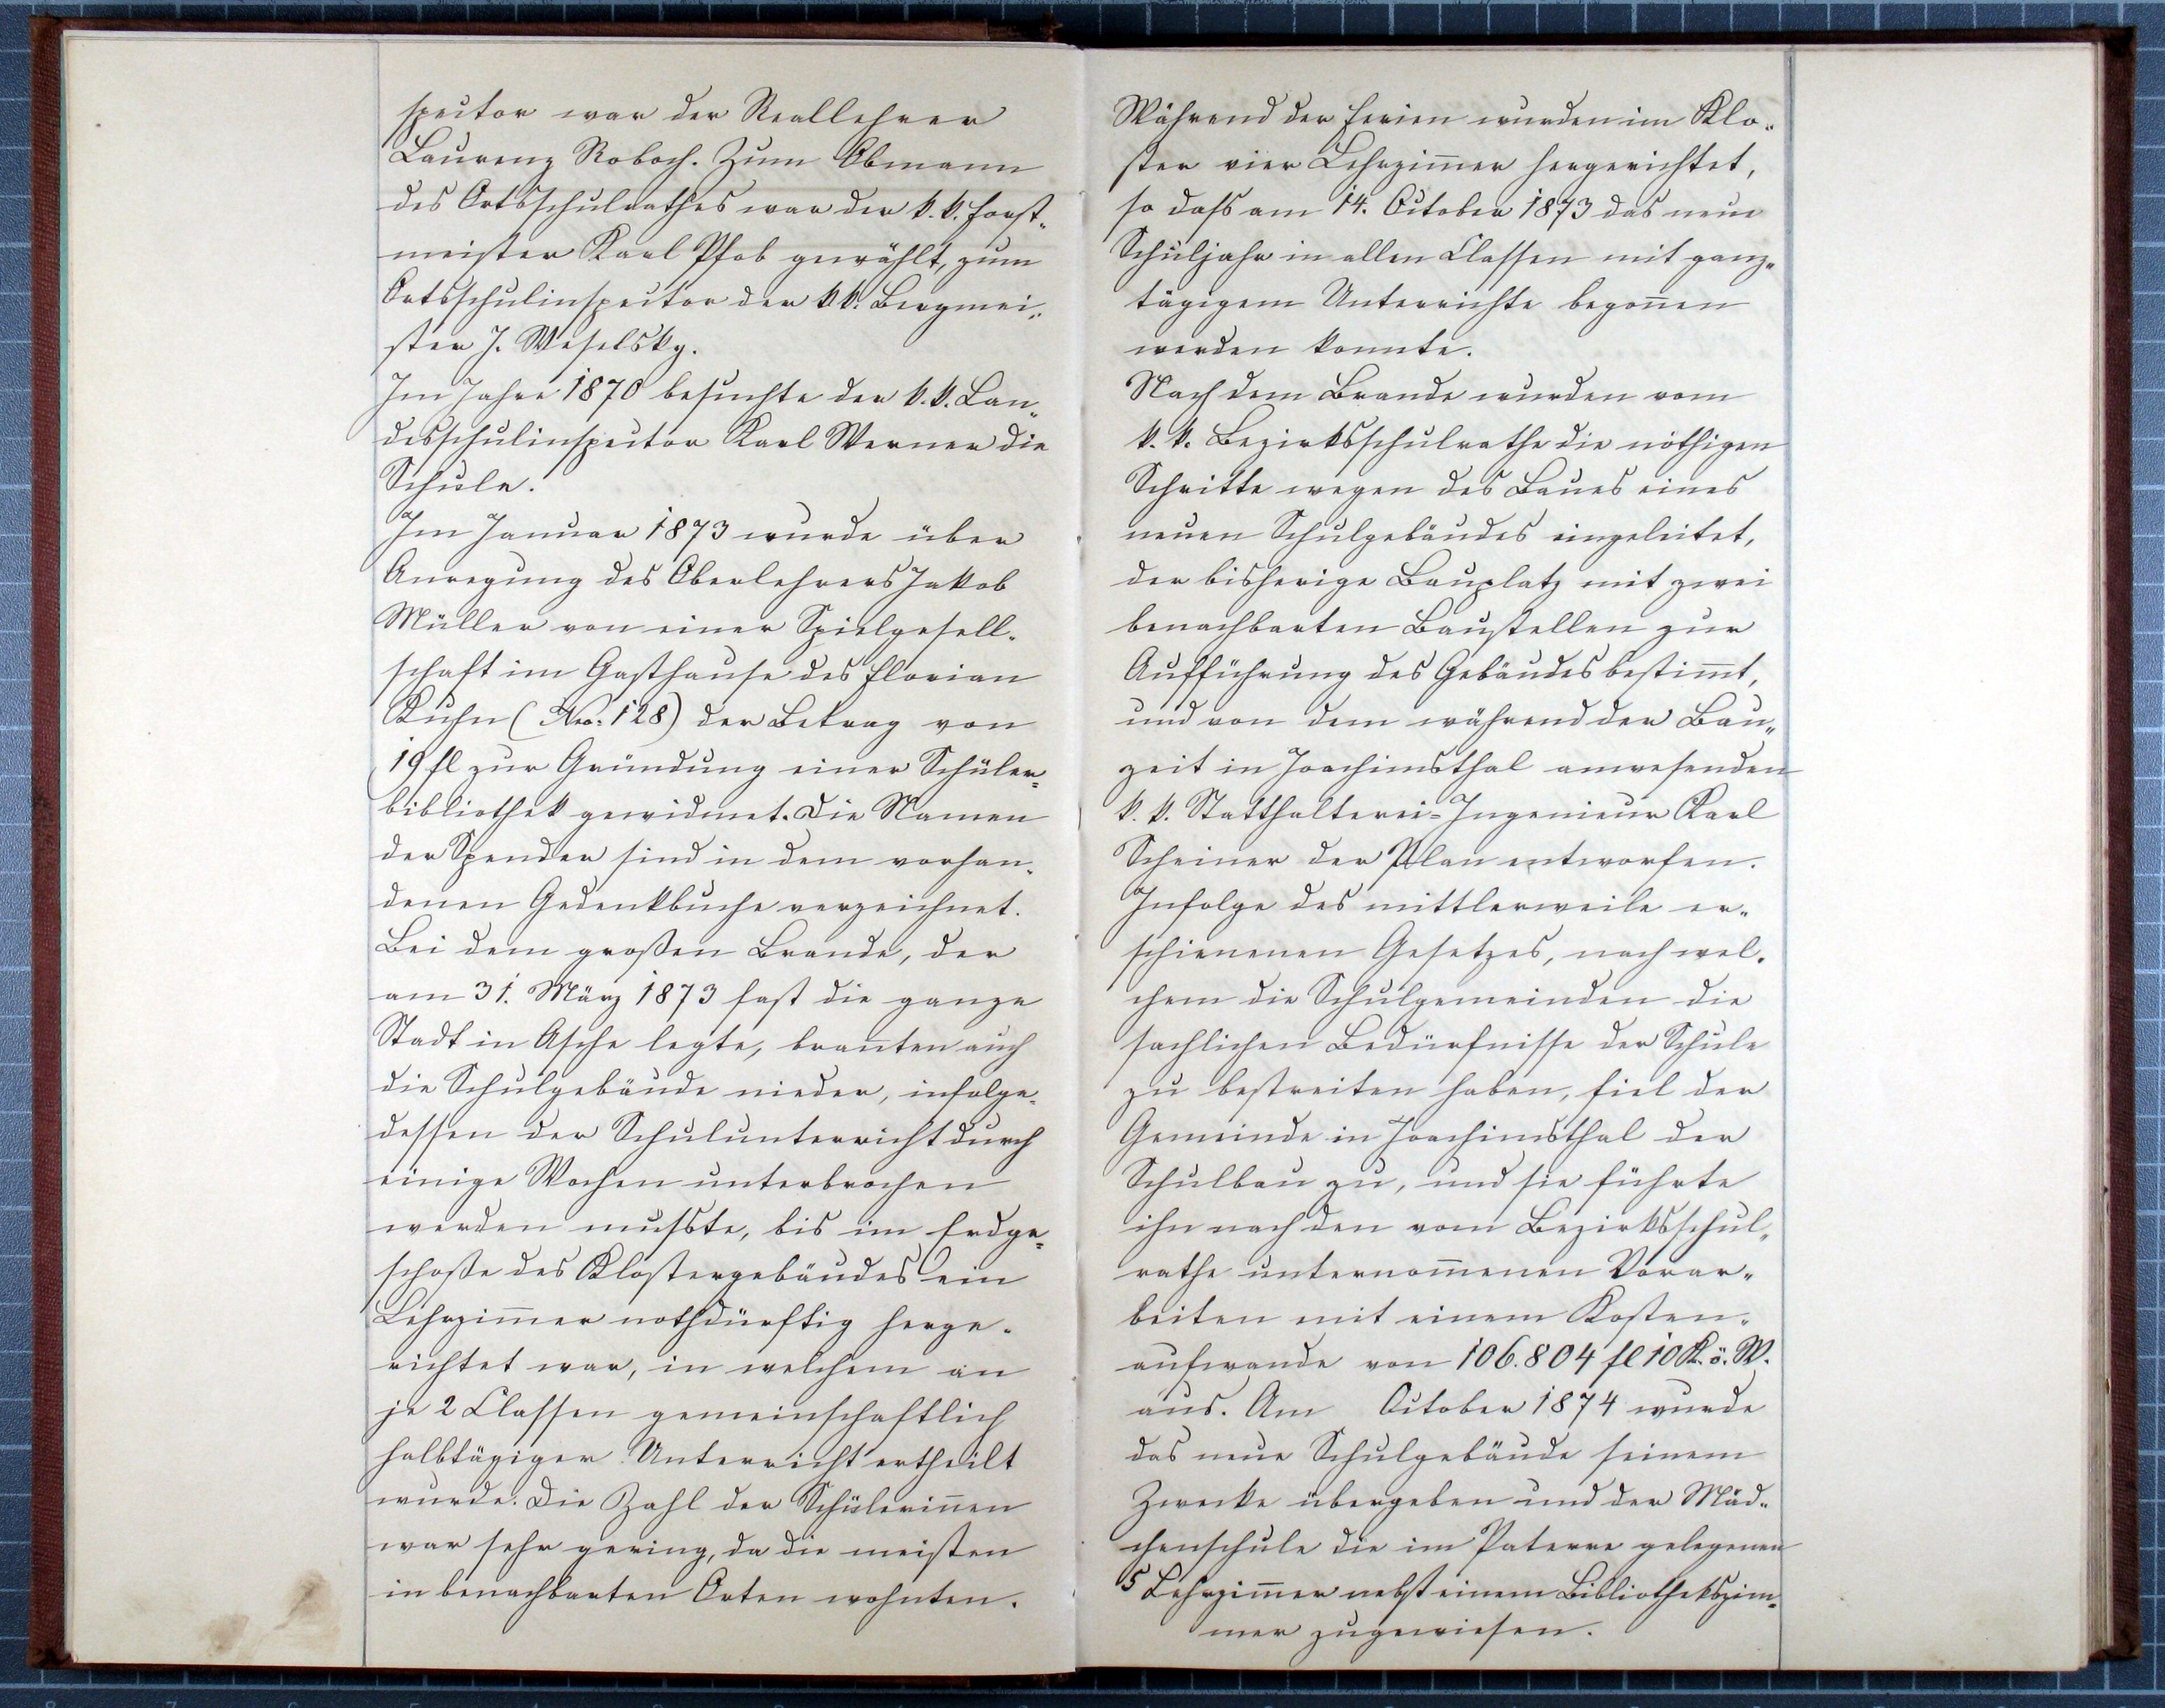 spector war der Reallehrer
Laurenz Roboch. Zum Obmann
des Ortsschulrathes war der k. k. Forst„
meister Karl Pfob gewählt, zum
Ortsschulinspector der k k. Bergmei„
ster J. Weselsky.
Im Jahre 1870 besuchte der k. k. Lan„
desschulinspector Karl Werner die
Schule.
Im Januar 1873 wurde über
Anregung des Oberlehrers Jakob
Müller von einer Spielgesell-
schaft im Gasthause des Florian
Kuhn (Nro. 128) der Betrag von
19 fl zur Gründung einer Schüler=
bibliothek gewidmet. Die Namen
der Spender sind in dem vorhan-
denen Gedenkbuche verzeichnet.
Bei dem großen Brande, der
am 31. März 1873 fast die ganze
Stadt in Asche legte, bran̅ten auch
die Schulgebäude nieder, infolge-
dessen der Schulunterricht durch
einige Wochen unterbrochen
werden musste, bis im Erdge=
schoße des Klostergebäudes ein
Lehrzim̅er nothdürftig herge-
richtet war, in welchem an
je 2 Classen gemeinschaftlich
halbtägiger Unterricht ertheilt
wurde. Die Zahl der Schülerin̅en
war sehr gering, da die meisten
in benachbarten Orten wohnten.
Während der Ferien wurden im Klo„
ster vier Lehrzim̅er hergerichtet,
so dass am 14. October 1873 das neue
Schuljahr in allen Classen mit ganz„
tägigem Unterrichte begon̅en
werden konnte.
Nach dem Brande wurden vom
k. k. Bezirksschulrathe die nöthigen
Schritte wegen des Baues eines
neuen Schulgebäudes eingeleitet,
der bisherige Bauplatz mit zwei
benachbarten Baustellen zur
Aufführung des Gebäudes bestim̅t,
und von dem während der Bau„
zeit in Joachimsthal anwesenden
k. k. Statthalterei=Ingenieur Karl
Scheiner der Plan entworfen.
Infolge des mittlerweile er„
schienenen Gesetzes, nach wel-
chem die Schulgemeinden die
sachlichen Bedürfnisse der Schule
zu bestreiten haben, fiel der
Gemeinde in Joachimsthal der
Schulbau zu, und sie führte
ihn nach den vom Bezirksschul„
rathe unternom̅enen Vorar„
beiten mit einem Kosten„
aufwande von 106.804 fl 10 Kr. ö. W.
aus. Am October 1874 wurde
das neue Schulgebäude seinem
Zwecke übergeben und der Mäd„
chenschule die im Paterre gelegenen
5 Lehrzim̅er nebst einem Bibliothekszim=
mer zugewiesen.